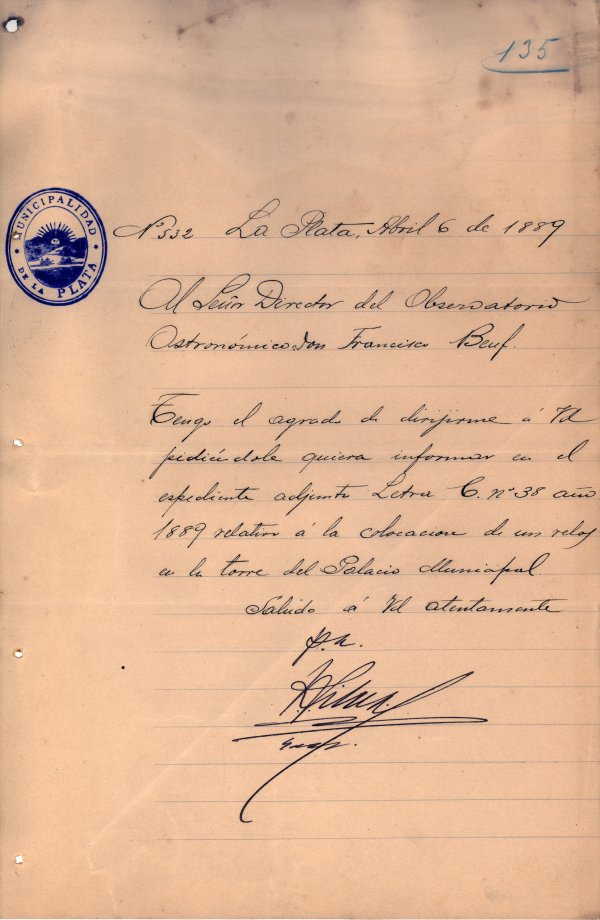 135
MUNICIPALIDAD
DE LA PLATA
Nº 532 La Plata, Abril 6 de 1889
Al Señor Director del Observatorio
Astronómico Don Francisco Beuf.
Tengo el agrado de dirijirme á Vd
pidiéndole quiera informar en el
espediente adjunto Letra C. nº 38 año
1889 relativo á la colocacion de un reloj
en la torre del Palacio Municipal
Saludo á Vd atentamente